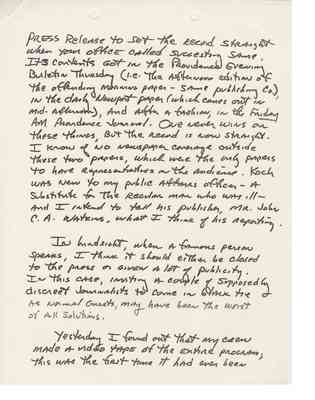 PRESS RELEASE TO SET THE RECORD STRAIGHT
WHEN YOUR OFFICE CALLED SUGGESTING SAME.
ITS CONTENTS GOT IN THE PROVIDENCE EVENING
BULLETIN THURSDAY (I.E. THE AFTERNOON EDITION OF
THE OFFENDING MORNING PAPER - SAME PUBLISHING CO),
IN THE DAILY NEWPORT PAPER (WHICH COMES OUT IN
MID-AFTERNOON), AND AFTER A FASHION, IN THE FRIDAY
AM PROVIDENCE JOURNAL. ONE NEVER WINS ON
THESE THINGS, BUT THE RECORD IS NOW STRAIGHT.
I KNOW OF NO NEWSPAPER COVERAGE OUTSIDE
THESE TWO PAPERS, WHICH WERE THE ONLY PAPERS
TO HAVE REPRESENTATIVES IN THE AUDIENCE. KOCH
WAS NEW TO MY PUBLIC AFFAIRS OFFICER - A
SUBSTITUTE FOR THE REGULAR MAN WHO WAS ILL -
AND I INTEND TO TELL HIS PUBLISHER, MR. JOHN
C. A. WATKINS, WHAT I THINK OF HIS REPORTING.
IN HINDSIGHT, WHEN A FAMOUS PERSON
SPEAKS, I THINK IT SHOULD EITHER BE CLOSED
TO THE PRESS OR GIVEN A LOT OF PUBLICITY.
IN THIS CASE, INVITING A COUPLE OF SUPPOSEDLY
DISCREET JOURNALISTS TO COME IN BLACK TIE
AS NORMAL GUESTS, MAY HAVE BEEN THE WORST
OF ALL SOLUTIONS.
YESTERDAY I FOUND OUT THAT MY CREW
MADE A VIDEO TAPE OF THE ENTIRE PROGRAM;
THIS WAS THE FIRST TIME IT HAD EVER BEEN